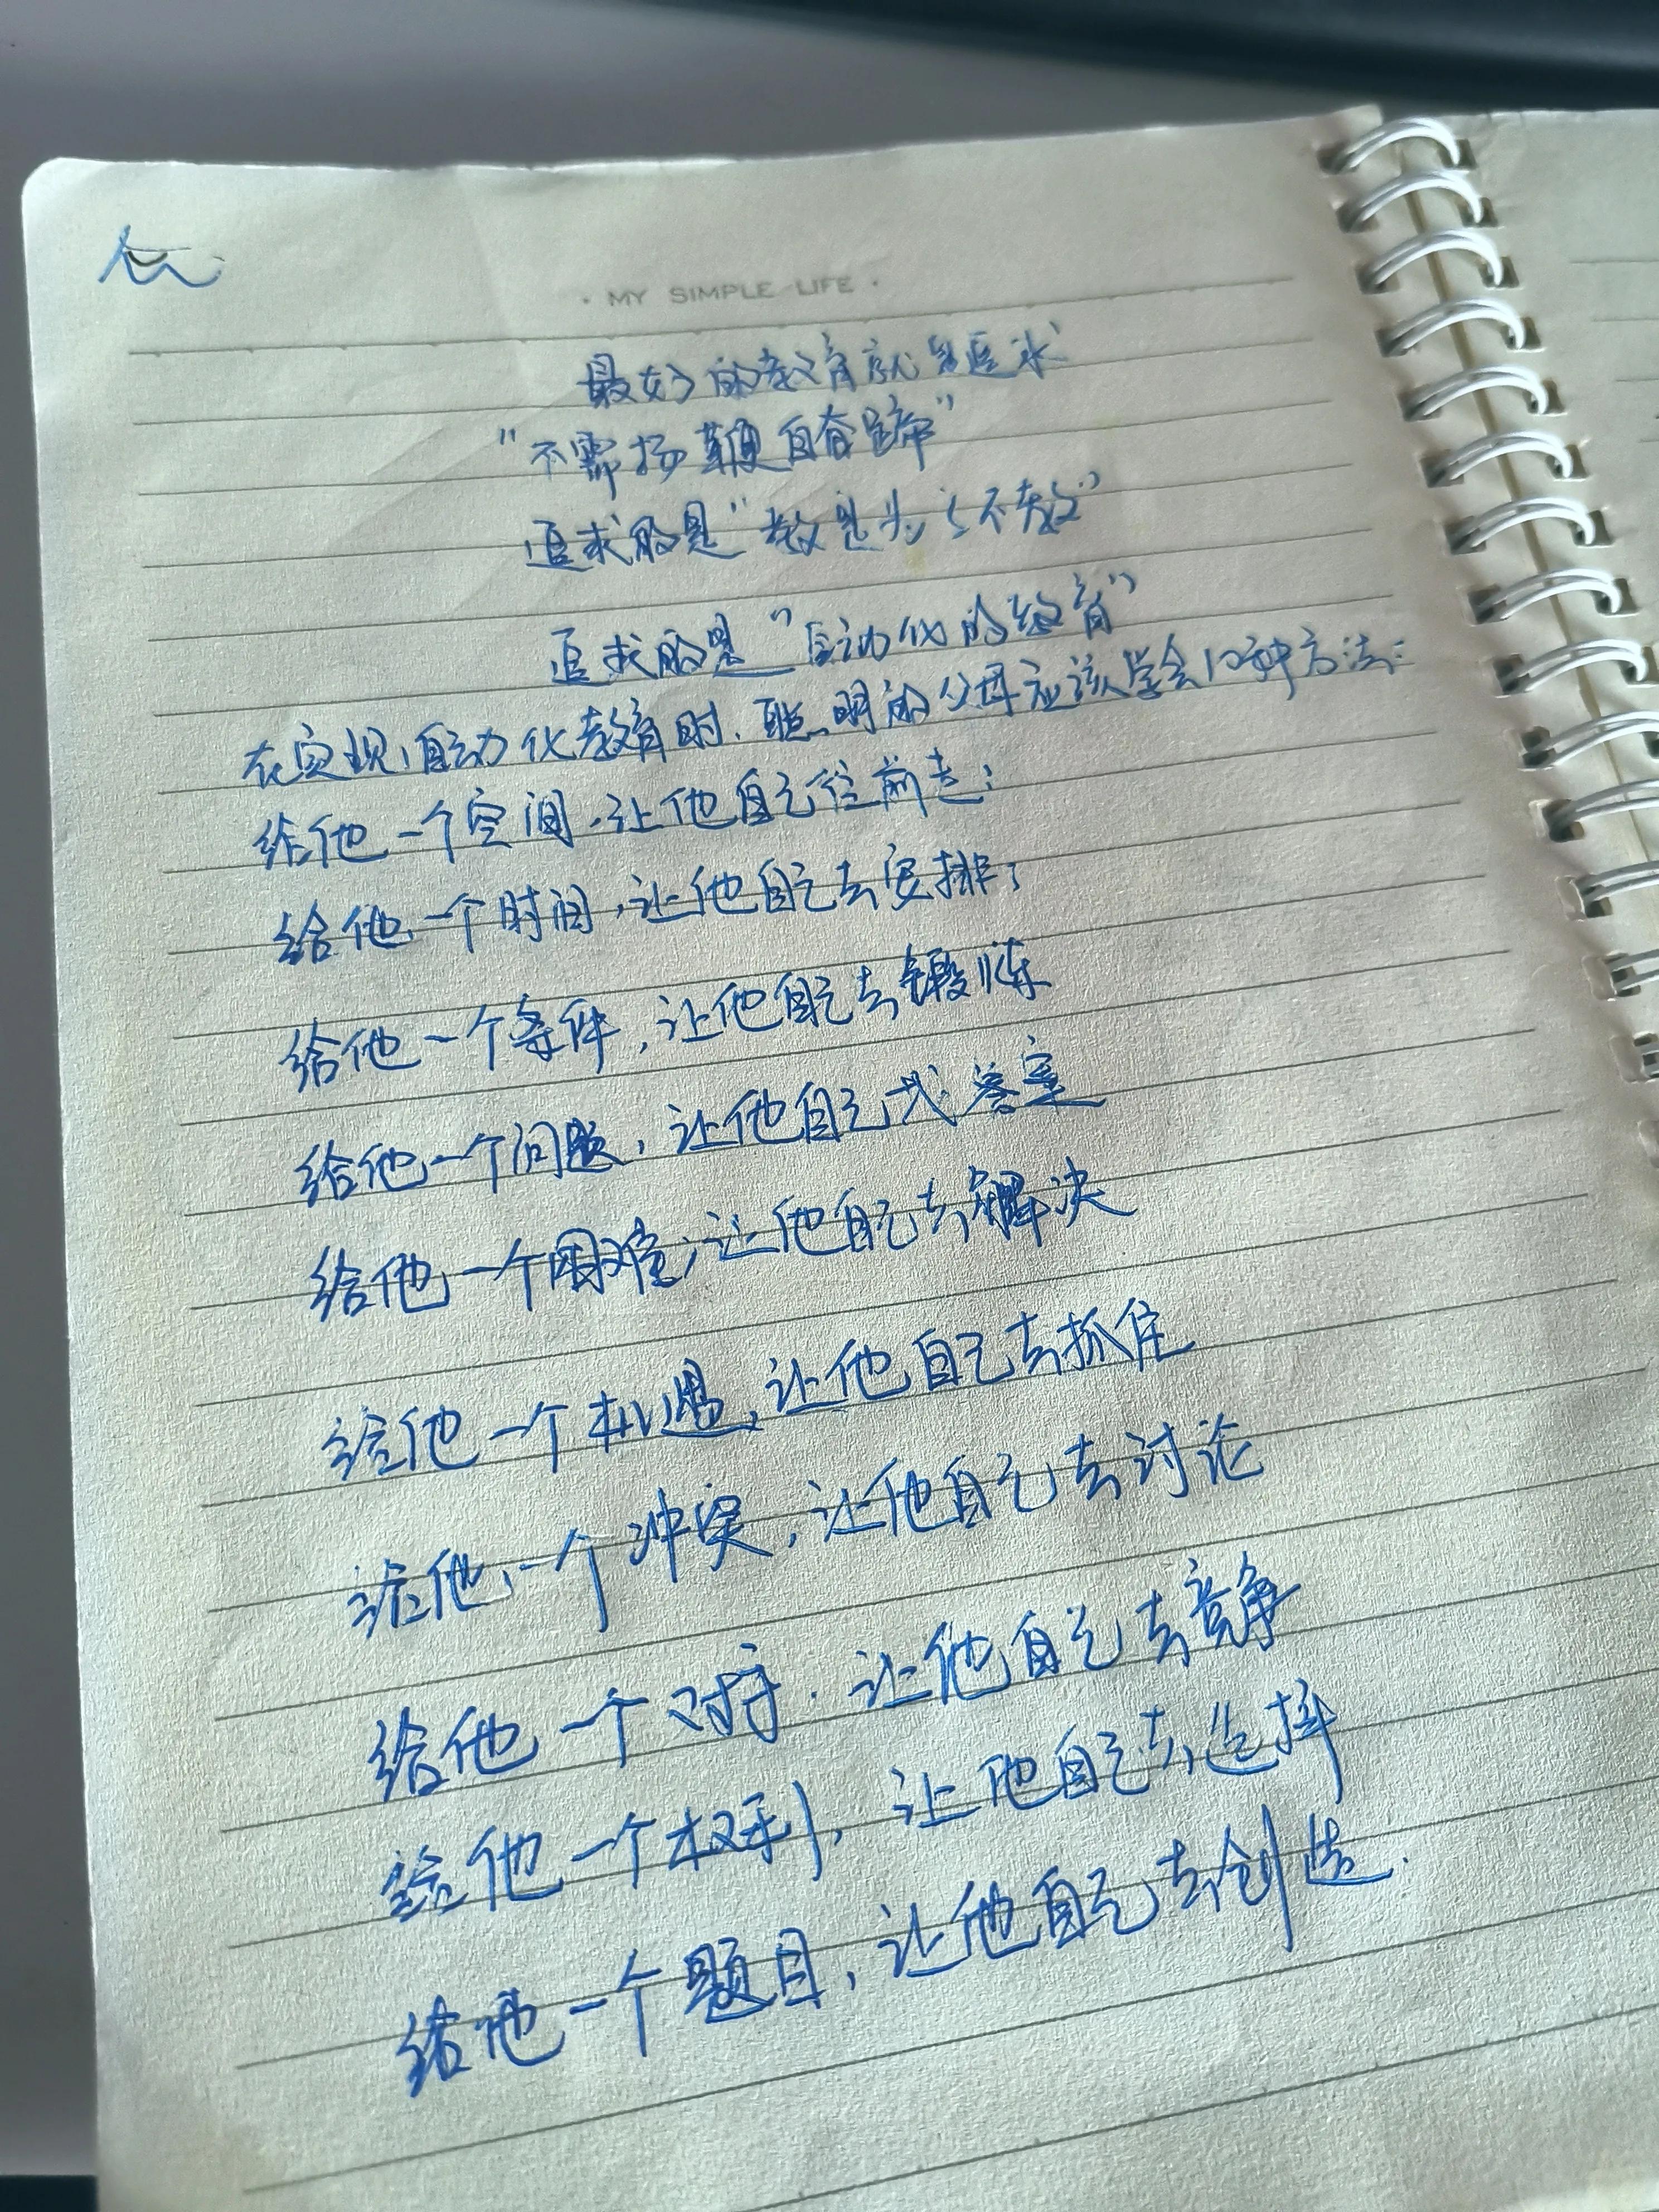 · MY SIMPLE LIFE ·
最好的教育就是追求
"不需扬鞭自奋蹄"
追求的是"教是为了不教"
追求的是"自动化的教育"
在实现自动化教育时，聪明的父母应该学会10种方法：
给他一个空间，让他自己往前走；
给他一个时间，让他自己去安排；
给他一个条件，让他自己去锻炼
给他一个问题，让他自己找答案
给他一个困难，让他自己去解决
给他一个机遇，让他自己去抓住
给他一个冲突，让他自己去讨论
给他一个对手，让他自己去竞争
给他一个权利，让他自己去选择
给他一个题目，让他自己去创造.